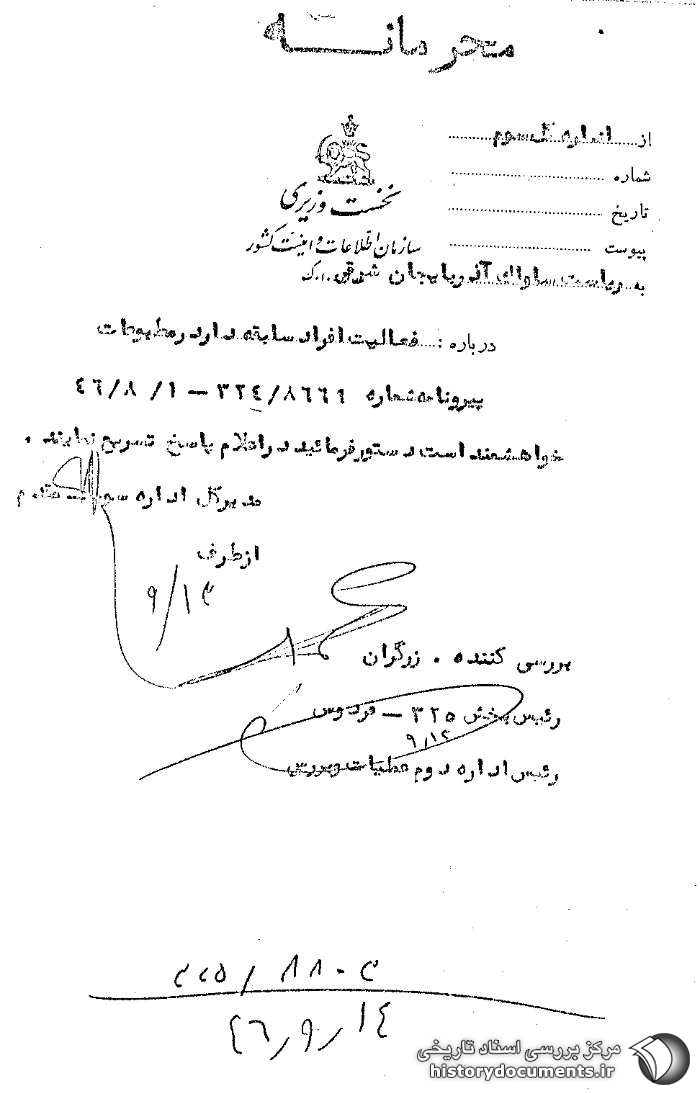 محرمانه
از اداره کل سوم
شماره
تاریخ
پیوست
نخست وزیری
سازمان اطلاعات و امنیت کشور
به ریاست ساواک آذربایجان شرقی
درباره : فعالیت افراد سابقه دار در مطبوعات
پیرونامه شماره ۳۲٤/۸٦٦۹ – ٤٦/۸/۱
خواهشمند است دستور فرمائید در اعلام پاسخ تسریع نمایند .
مدیرکل اداره سوم
از طرف
۹/۱۳
بررسی کننده . زرگران
رئیس بخش ۳۲۵ – فردوس
۹/۱۲
رئیس اداره دوم عملیات و بررسی
۳۲۵ / ۸۸۰۳
٤٦ ٫ ۹ ٫ ۱٤
مرکز بررسی اسناد تاریخی
historydocuments.ir